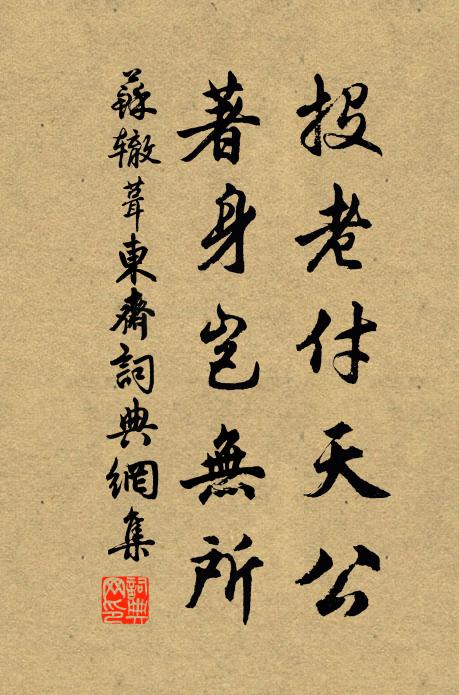 投老付天公
著身岂無所
蘇辙葺東齋詞典網集
詞典网印